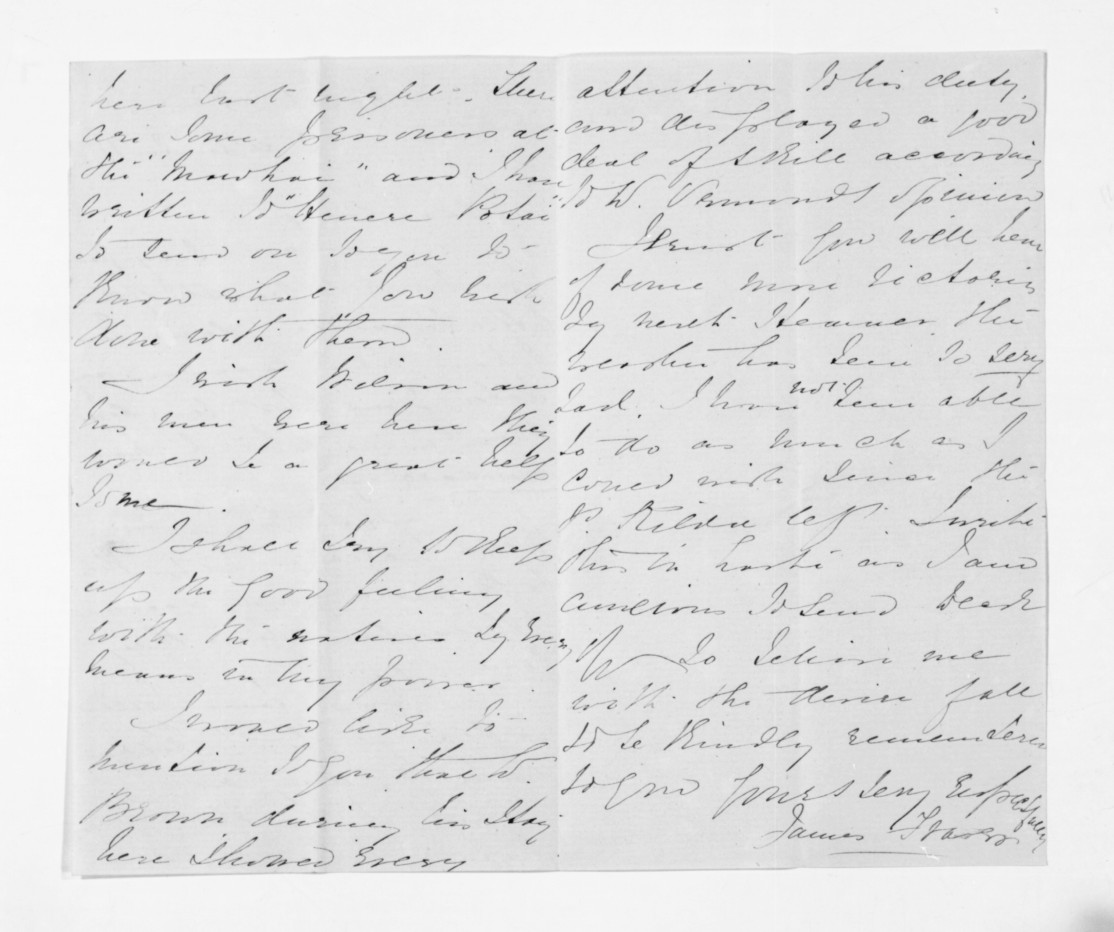 here last night. There
are some prisoners at
the "Mawhai" and I have
written to "Henere Potai"
to send on to you to
know what you wish
done with them.
I wish Wilson and
his men were here they
would be a great help
to me.
I shall try to keep
up the good feeling
with the natives by every
means in my power.
I would like to
mention to you that D.
Brown during his stay
here showed every
attention to his duty
and displayed a good
deal of skill according
to D. Ormond's opinion
I trust you will hear
of some more victories
by next steamer. The
weather has been so very
bad, I have not been able
to do as much as I
could wish since the
St. Kilda left. I write
this in haste as I am
anxious to send
off So believe me
with the desire
to be kindly remembered
to you yours very respectfully
James Fraser